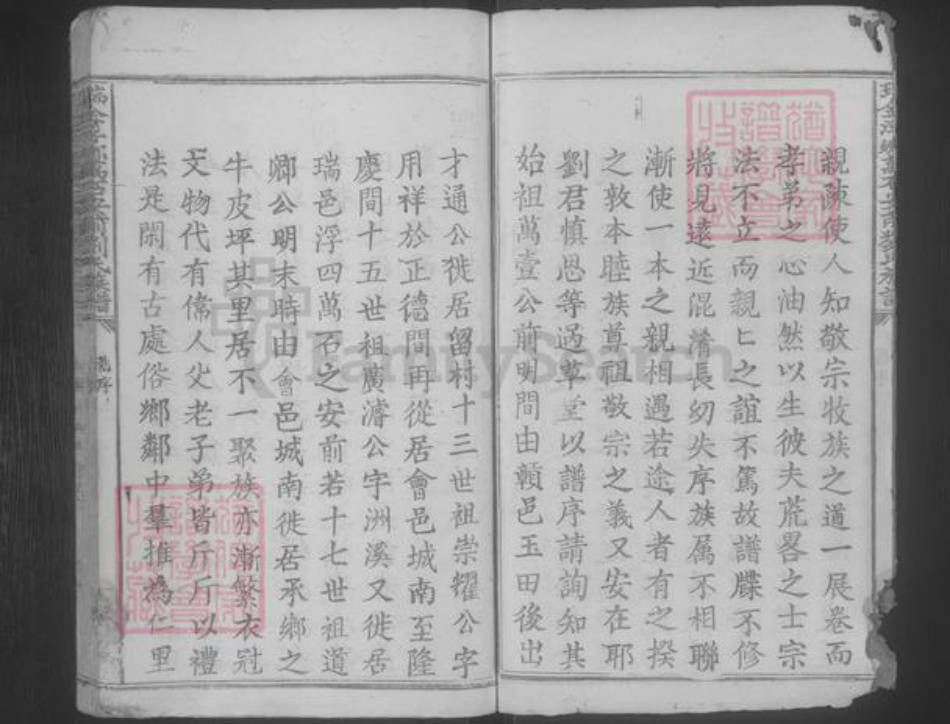 親踈使人知敬宗牧族之道一展卷而
孝弟之心油然以生彼夫荒畧之士宗
法不立而親匕之誼不篤故譜牒不修
將見遠近混淆長幼失序族属不相聯
漸使一本之親相遇若途人者有之揆
之敦本睦族尊祖敬宗之義又安在耶
劉君慎思等過草堂以譜序請詢知其
始祖萬壹公前明間由贑邑玉田後出
才通公徙居留村十三世祖崇耀公字
用祥於正德間再從居會邑城南至隆
慶間十五世祖廣濬公字洲溪又徙居
瑞邑浮四萬石之安前若十七世祖道
卿公明末時由會邑城南徙居承鄉之
牛皮坪其里居不一聚族亦漸繁衣冠
文物代有偉人父老子弟皆斤斤以禮
法是閑有古處俗鄉鄰中羣推為仁里
FamilySearch